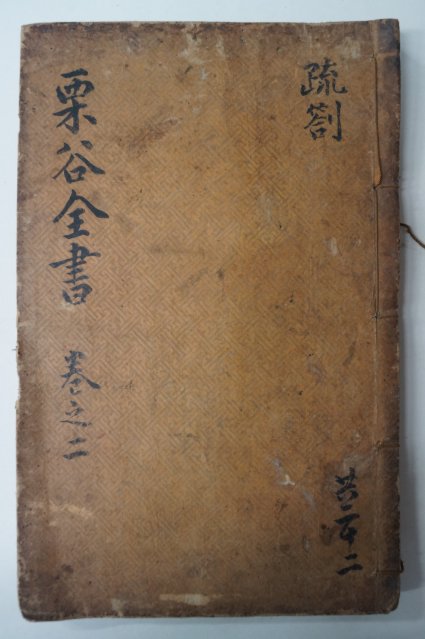 疏劄
共
二
栗谷全書
卷之二